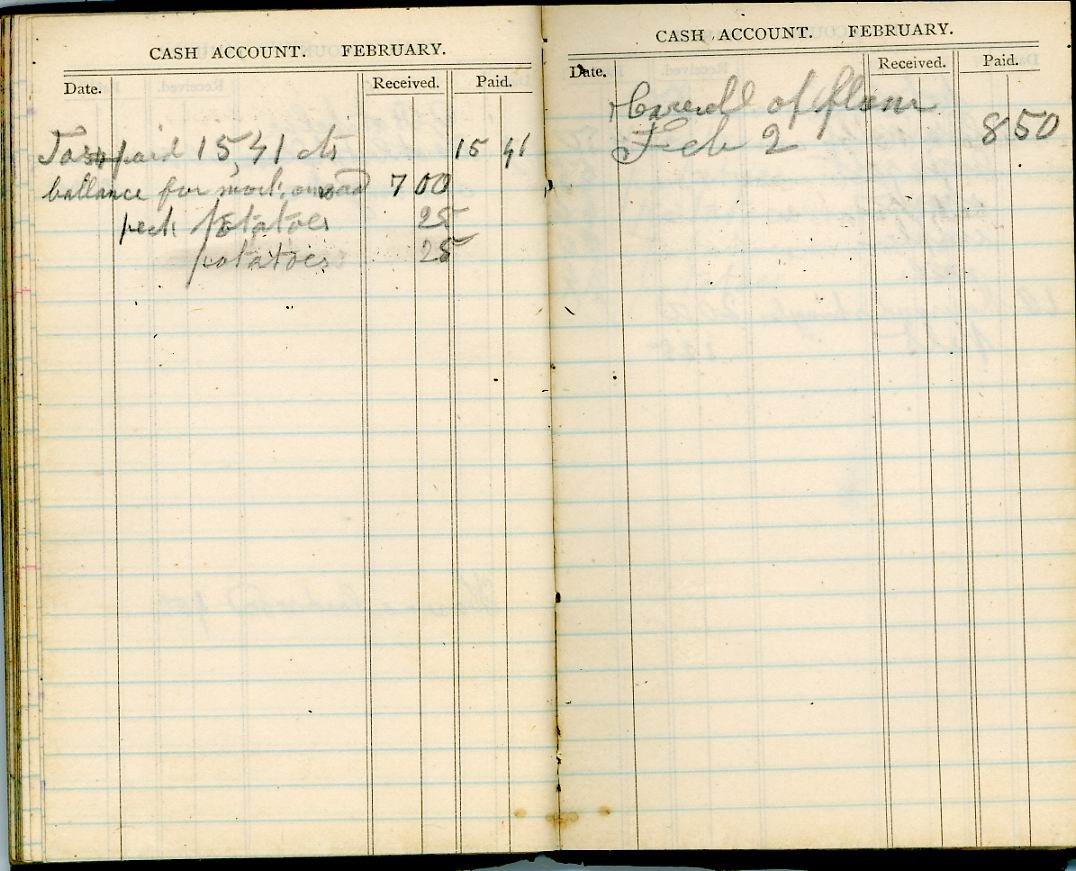 CASH ACCOUNT. FEBRUARY.
Date. Received. Paid.
Tax paid 15,41 cts 15 41
ballance for work on road 7 00
peck potatoes 25
potatoes 25
CASH ACCOUNT. FEBRUARY.
Date. Received. Paid.
of flour
Feb 2 8 50